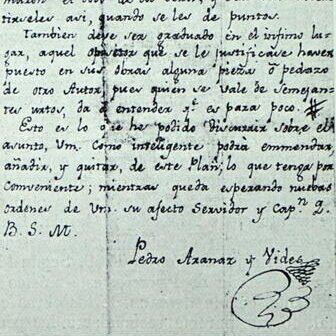 tirseles asi, quando se les de puntos.
Tambien deve ser graduado en el infimo lu-
gar, aquel opositor que se le justificase haver
puesto en sus obras alguna pieza ò pedazo
de otro Autor, pues quien se vale de Semejan-
tes urtos, da à entender q.e es para poco.
Esto es lo que he podido discurrir sobre el
asunto, Vm. Como inteligente podrà emmendar,
añadir, y quitar, de este Plan, lo que tenga por
Combeniente; mientras queda esperando nuebas
ordenes de Vm. su afecto Servidor y Cap.n Q.
B. S. M.
Pedro Aranaz y Vides